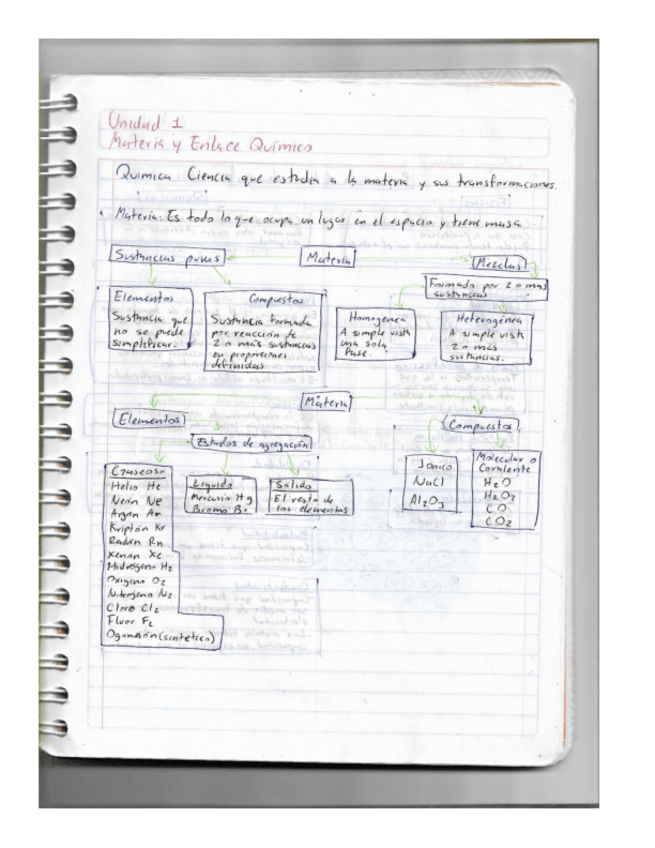 Unidad 1
Materia y Enlace Químico
Química: Ciencia que estudia a la materia y sus transformaciones.
Materia: Es todo lo que ocupa un lugar en el espacio y tiene masa
Sustancias puras
Materia
Mezclas
Formado por 2 o mas
sustancias
Elementos
Sustancia que
no se puede
simplificar.
Compuestos
Sustancia formada
por reacción de
2 o más sustancias
en proporciones
definidas
Homogenea
A simple vista
una sola
fase.
Heterogénea
A simple vista
2 o más
sustancias.
Materia
Elementos
Compuestos
Estados de agregación
Gaseoso
Helio He
Neón Ne
Argon Ar
Kriptón Kr
Radón Rn
Xenón Xe
Hidrógeno H₂
Oxigeno O₂
Nitrógeno N₂
Cloro Cl₂
Fluor F₂
Oganesón (sintético)
Liquido
Mercurio Hg
Bromo Br
Solido
El resto de
los elementos
Ionico
NaCl
Al₂O₃
Molecular o
Covalente
H₂O
H₂O₂
CO
CO₂